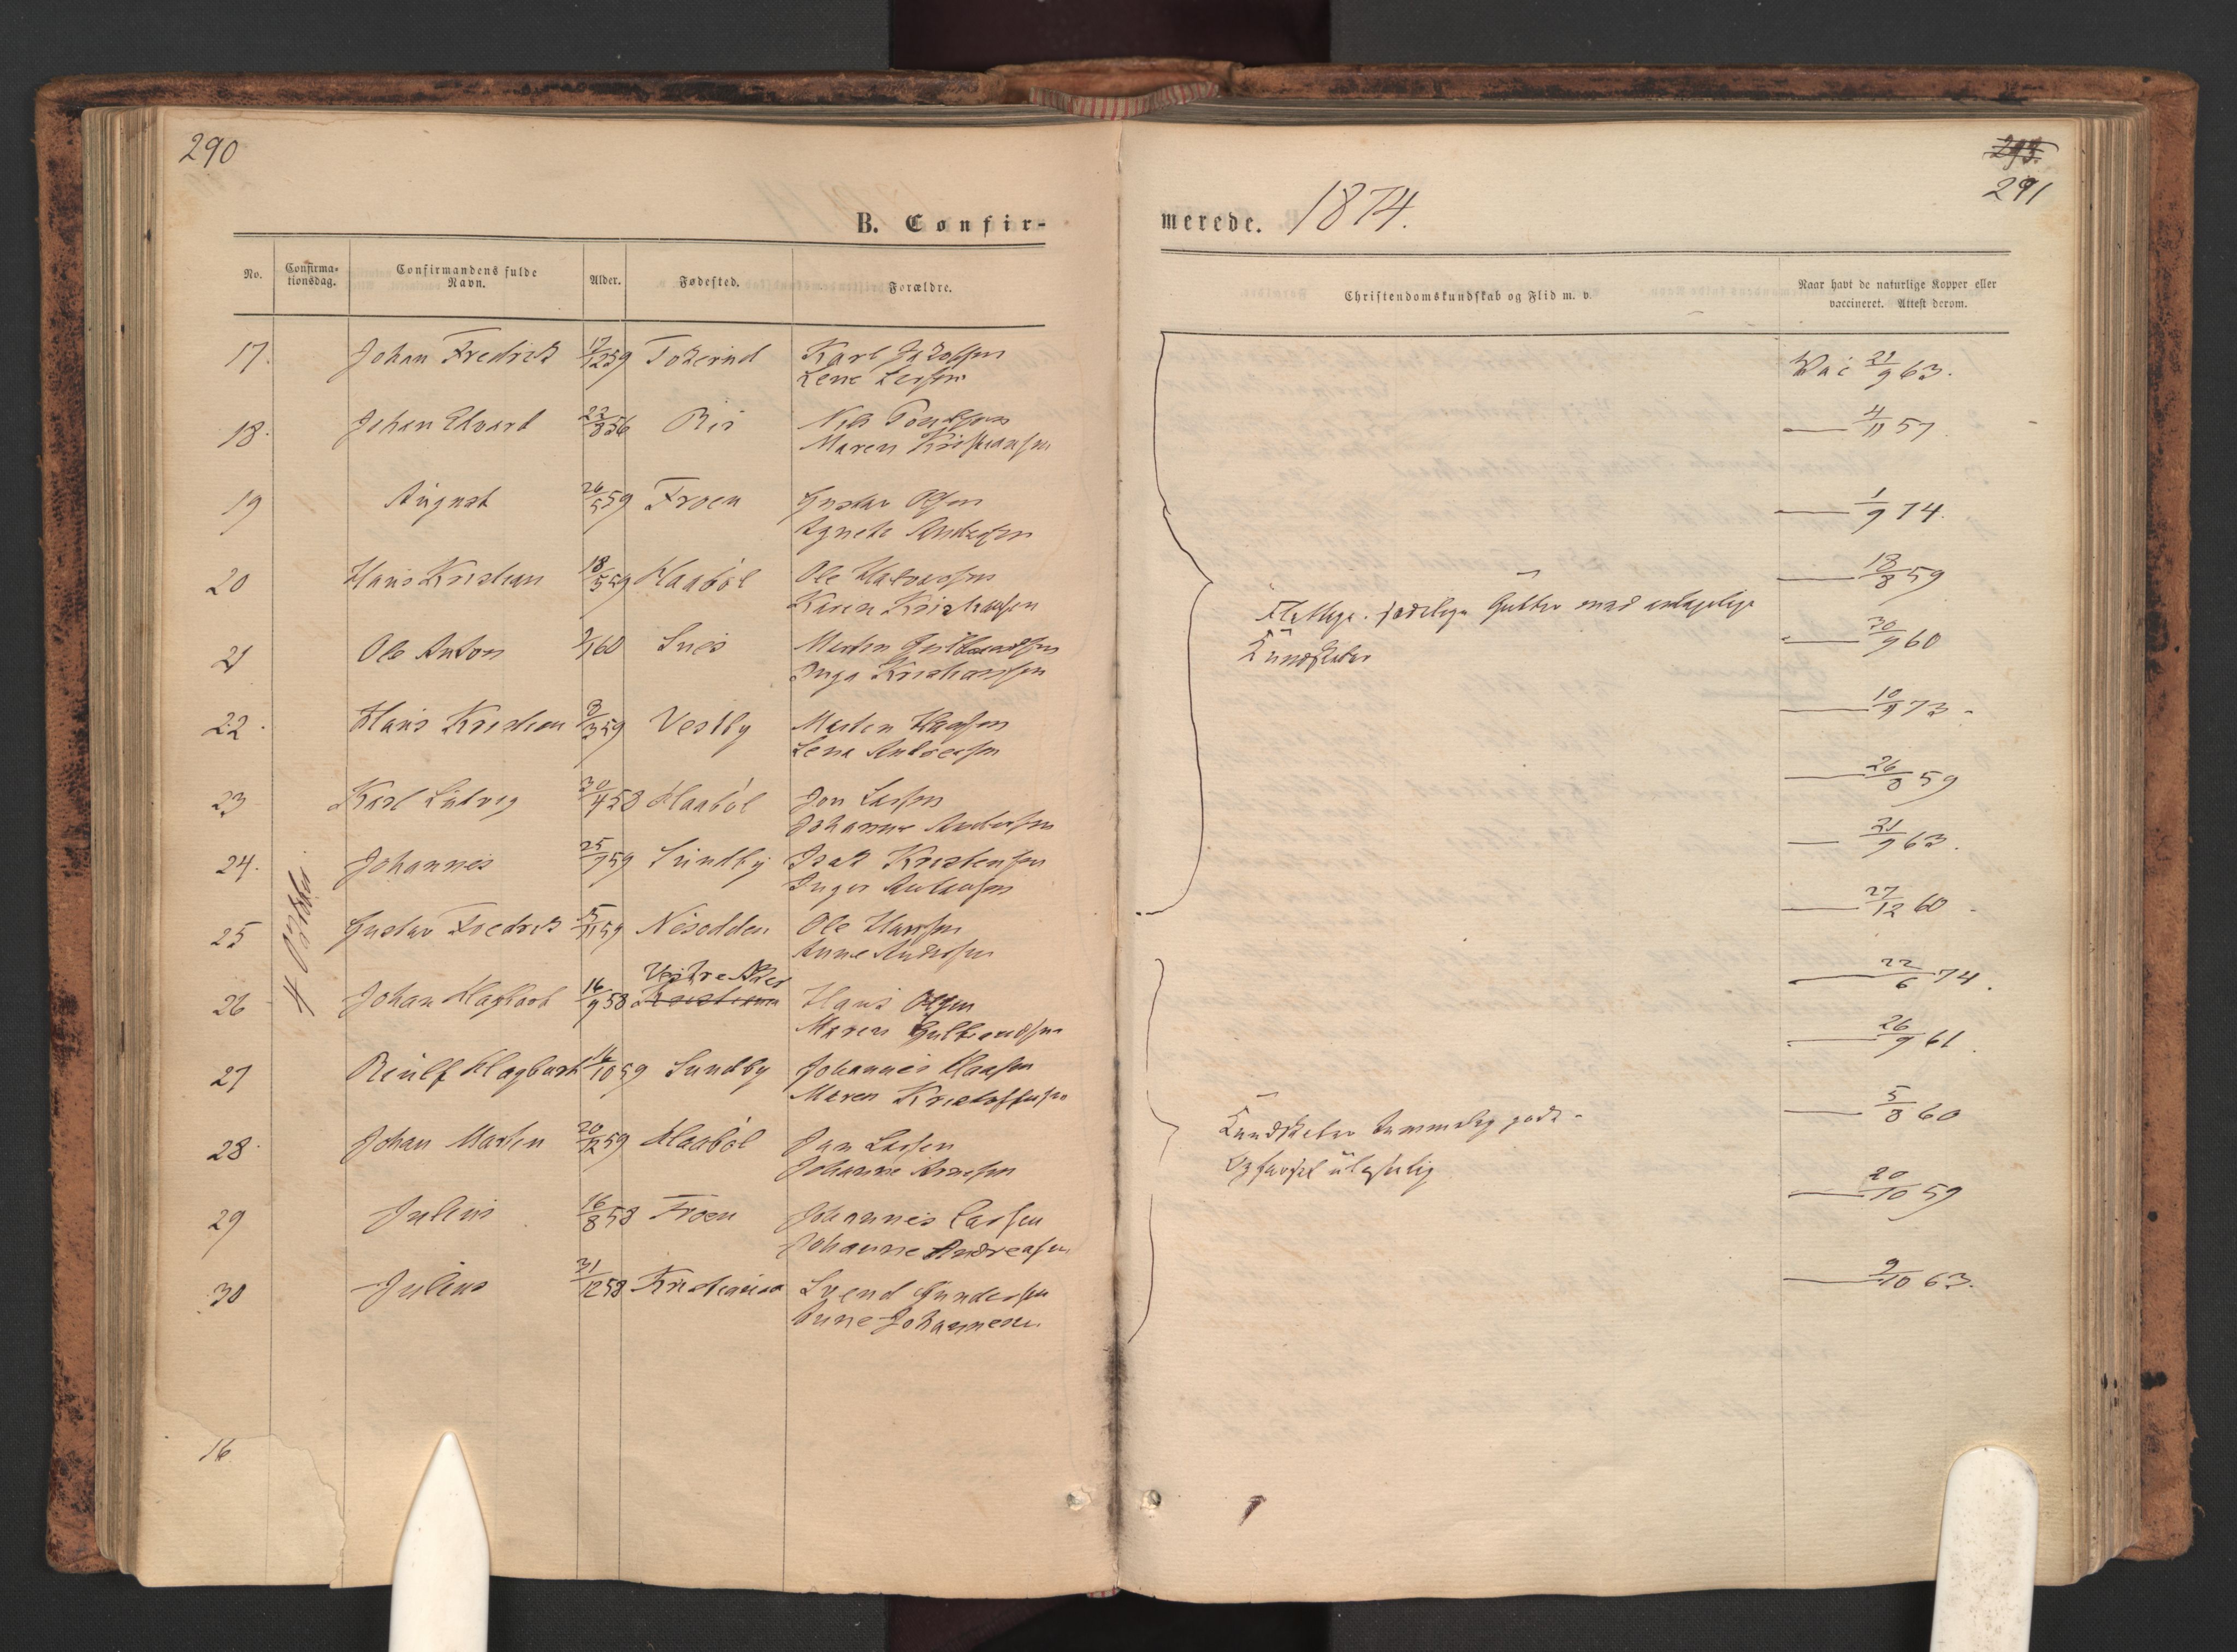 290
B. Confir-
No.
Confirma-
tionsdag.
Confirmandens fulde
Navn.
Alder.
Fødested.
Forældre.
4 Oktober
17. Johan Fredrik 17/12 59 Tokerud Karl Jakobsen
Lene Larsen
18. Johan Edvard 23/8 56 Ris Nils Poulsen
Maren Kristiansen
19 August 26/5 59 Froen Gustav Olsen
Agnete Andersen
20 Hans Kristian 18/5 59 Haabøl Ole Halvorsen
Karen Kristiansen
21 Ole Anton 9/1 60 Snes Martin Gulbrandsen
Inga Kristiansen
22. Hans Kristian 8/3 59 Vestby Martin Hansen
Lena Andreasen
23 Karl Ludvig 30/4 58 Haabøl Jon Larsen
Johanne Andersen
24. Johannes 25/7 59 Sundby Isak Kristensen
Inger Andersen
25 Gustav Fredrik 5/11 59 Nesodden Ole Hansen
Anne Andersen
Vestre Aker
26 Johan Hagbart 16/9 58 Kristiania Hans Olsen
Maren Gulbrandsen
27 Reiulf Hagbart 16/10 59 Sundby Johannes Hansen
Maren Kristoffersen
28. Johan Martin 20/12 59 Haabøl Jan Larsen
Johanne Arnesen
29 Julius 16/8 58 Froen Johannes Larsen
Johanne Andreasen
30 Julius 31/12 58 Kristiania Svend Gundersen
Anne Johannesen
16
295.
291
merede. 1874.
Christendomskundskab og Flid m. v.
Naar havt de naturlige Kopper eller
vaccineret. Attest derom.
Vac 21/9 63.
— 4/11 57.
— 1/9 74.
— 18/8 59
Flittige, sædelige Gutter med antagelige
Kundskaber
— 30/9 60
— 10/9 73
— 26/8 59
— 21/9 63.
— 27/12 60
— 22/6 74.
— 26/9 61.
— 5/8 60
Kundskaber temmelig gode
Opførsel ulastelig
— 20/10 59
— 9/10 63.